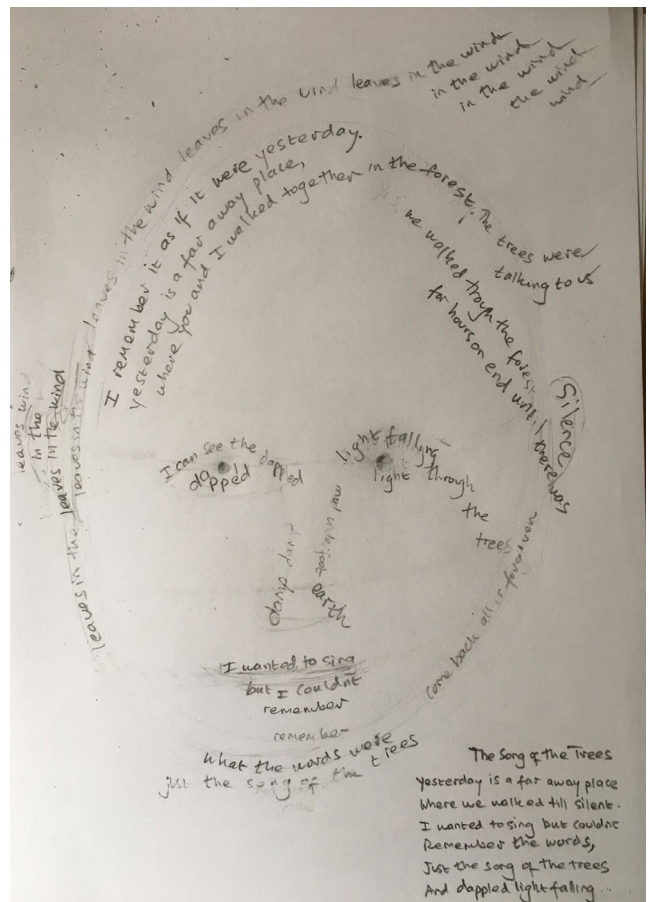 leaves in the wind leaves in the wind leaves in the wind leaves in the wind
in the wind
in the wind
the wind
wind
I remember it as if it were yesterday.
yesterday is a far away place,
where you and I walked together in the forest. The trees were
talking to us
we walked trough the forest
for hours on end until there was
Silence
leaves wind
in the
leaves in the wind
leaves in the
I can see the dappled
dappled
light falling
light through
the
trees
damp damp
earth
I wanted to sing
but I couldnt
remember
remember
what the words were
just the song of the trees
come back all is forgiven
The Song of the Trees
Yesterday is a far away place
Where we walked till silent.
I wanted to sing but couldnt
Remember the words,
Just the song of the trees
And dappled light falling...